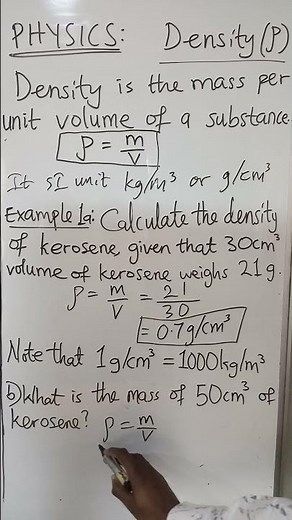 PHYSICS: Density (ρ)
Density is the mass per
unit volume of a substance.
ρ = m/V
It SI unit kg/m³ or g/cm³
Example 1a: Calculate the density
of kerosene, given that 30cm³
volume of kerosene weighs 21g.
ρ = m/V = 21/30
= 0.7g/cm³
Note that 1g/cm³ = 1000kg/m³
b) What is the mass of 50cm³ of
kerosene? ρ = m/V